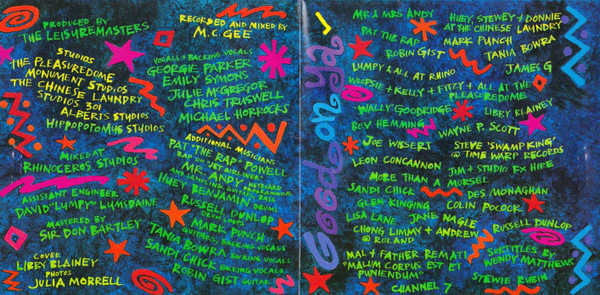 PRODUCED BY
THE LEISUREMASTERS
STUDIOS
THE PLEASUREDOME
MONUMENT STUDIOS
THE CHINESE LAUNDRY
STUDIOS 301
ALBERTS STUDIOS
HIPPOPOTAMUS STUDIOS
MIXED AT
RHINOCEROS STUDIOS
ASSISTANT ENGINEER
DAVID "LUMPY" LUMSDAINE
MASTERED BY
SIR DON BARTLEY
COVER
LIBBY BLAINEY
PHOTOS
JULIA MORRELL
RECORDED AND MIXED BY
M.C. GEE
VOCALS + BACKING VOCALS
GEORGIE PARKER
EMILY SYMONS
JULIE McGREGOR
CHRIS TRUSWELL
MICHAEL HORROCKS
ADDITIONAL MUSICIANS
PAT "THE RAP" POWELL
RAP ON "JET AIRLINER"
MR ANDY KEYBOARD
HUEY BENJAMIN DRUMS
RUSSELL DUNLOP
MARK PUNCH
GUITARS, BACKING VOCALS
TANIA BOWRA BACKING VOCALS
SANDI CHICK BACKING VOCALS
"ROBIN" GIST GUITAR
Good on ya!
MR & MRS ANDY
PAT THE RAP
ROBIN GIST
LUMPY & ALL AT RHINO
WOOPSIE + KELLY + FITZY + ALL AT THE
PLEASUREDOME
WALLY GOODRIDGE
BEV HEMMING
JOE WISSERT
LEON CONCANNON
MORE THAN A MORSEL
SANDI CHICK
GLEN KINGING
LISA LANE
CHONG LIMMY + ANDREW
@ ROLAND
MAL + FATHER REMATI
"MALUM CORPUS EST ET
PUNIENDUM"
CHANNEL 7
HUEY, STEWEY + DONNIE
AT THE CHINESE LAUNDRY
MARK PUNCH
TANIA BOWRA
JAMES G
LIBBY BLAINEY
WAYNE P. SCOTT
STEVE 'SWAMP KING'
@ TIME WARP RECORDS
JIM + STUDIO FX HIRE
DES MONAGHAN
COLIN POCOCK
JANE NAGLE
RUSSELL DUNLOP
SUBTITLES BY
WENDY MATTHEWS
STEWIE RUBIN